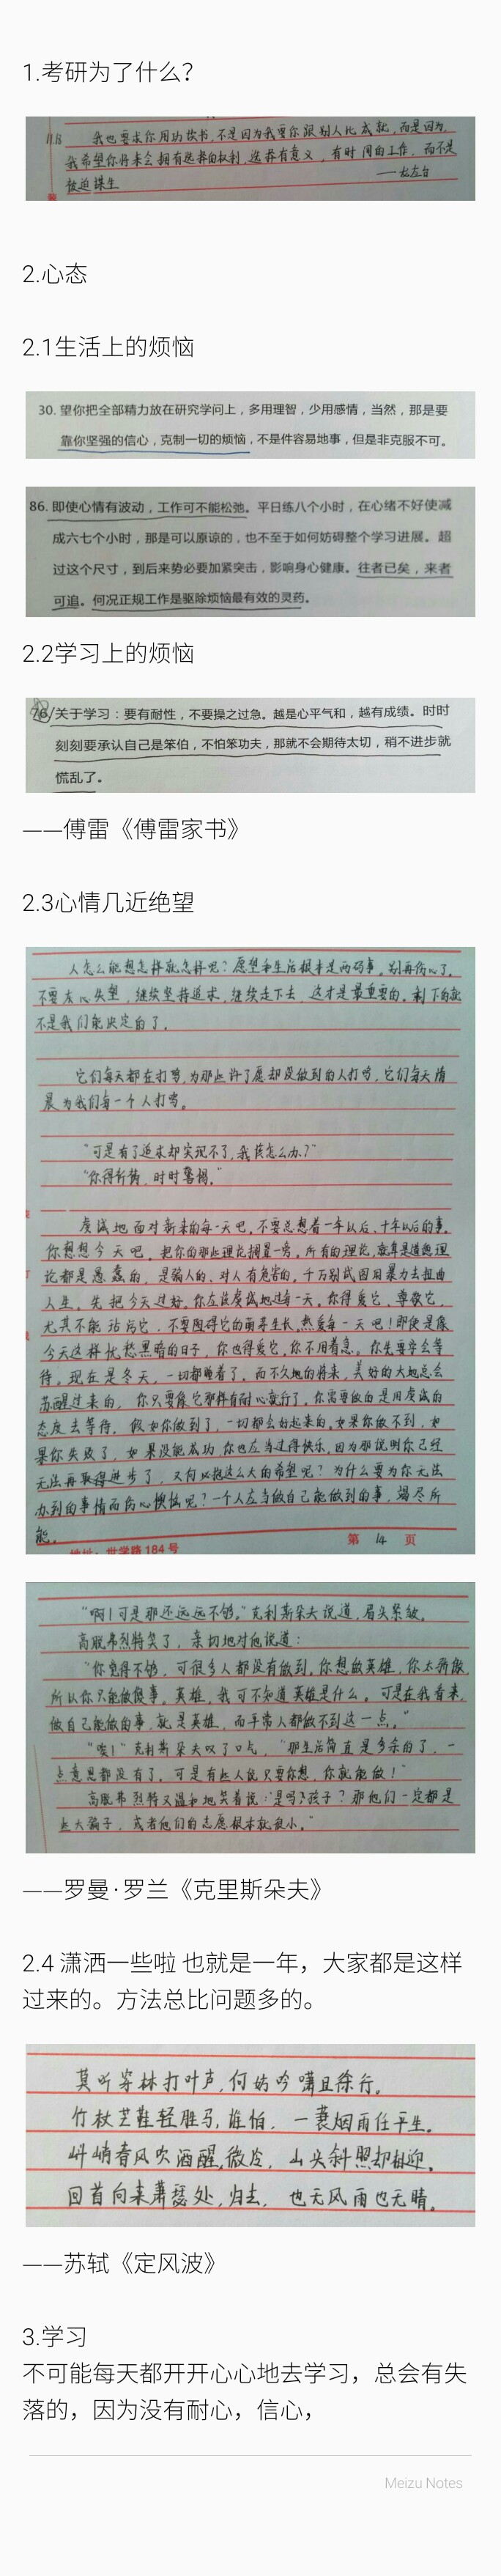 1.考研为了什么？
我也要求你用功读书,不是因为我要你跟别人比成就,而是因为,
我希望你将来会拥有选择的权利,选择有意义,有时间的工作,而不是
被迫谋生
2.心态
2.1生活上的烦恼
30. 望你把全部精力放在研究学问上，多用理智，少用感情，当然，那是要
靠你坚强的信心，克制一切的烦恼，不是件容易地事，但是非克服不可。
86. 即使心情有波动，工作可不能松弛。平日练八个小时，在心绪不好使减
成六七个小时，那是可以原谅的，也不至于如何妨碍整个学习进展。超
过这个尺寸，到后来势必要加紧突击，影响身心健康。往者已矣，来者
可追。何况正规工作是驱除烦恼最有效的灵药。
2.2学习上的烦恼
76/关于学习：要有耐性，不要操之过急。越是心平气和，越有成绩。时时
刻刻要承认自己是笨伯，不怕笨功夫，那就不会期待太切，稍不进步就
慌乱了。
——傅雷《傅雷家书》
2.3心情几近绝望
人怎么能想怎样就怎样呢？愿望和生活根本是两码事。别再伤心了。
不要灰心失望，继续坚持追求，继续走下去，这才是最重要的。剩下的就
不是我们能决定的了。
它们每天都在打鸣,为那些许了愿却没做到的人打鸣,它们每天清
晨为我们每一个人打鸣。
“可是有了追求却实现不了,我该怎么办?”
“你得祈祷，时时警惕。”
虔诚地面对新来的每一天吧。不要总想着一年以后、十年以后的事。
你想想今天吧。把你的那些理论搁置一旁。所有的理论,就算是道德理
论都是愚蠢的，是骗人的、对人有危害的。千万别试图用暴力去扭曲
人生。先把今天过好。你应该虔诚地过每一天。你得爱它、尊敬它,
尤其不能玷污它，不要阻碍它的萌芽生长,热爱每一天吧！即使是像
今天这样忧愁黑暗的日子，你也得爱它。你不用着急。你先要学会等
待。现在是冬天，一切都睡着了。而不久地的将来，美好的大地总会
苏醒过来的，你只要像它那样有耐心就行了。你需要做的是用虔诚的
态度去等待。假如你做到了，一切都会好起来的。如果你做不到，如
果你失败了，如果没能成功，你也应当过得快乐,因为那说明你已经
无法再取得进步了，又何必抱这么大的希望呢？为什么要为你无法
办到的事情而伤心懊恼呢？一个人应当做自己能做到的事，竭尽所
能。
地址：世学路184号
第 14 页
“啊！可是那还远远不够。”克利斯朵夫说道，眉头紧皱。
高脱弗烈特笑了，亲切地对他说道：
“你觉得不够，可很多人都没有做到。你想做英雄，你太骄傲,
所以你只能做傻事。英雄，我可不知道英雄是什么。可是在我看来,
做自己能做的事,就是英雄，而平常人都做不到这一点。”
“唉！”克利斯朵夫叹了口气，“那生活简直是多余的了，一
点意思都没有了。可是有些人说只要你想，你就能做！”
高脱弗烈特又温和地笑着说：“是吗？孩子？那他们一定都是
些大骗子，或者他们的志愿根本就很小。”
——罗曼·罗兰《克里斯朵夫》
2.4 潇洒一些啦 也就是一年，大家都是这样
过来的。方法总比问题多的。
莫听穿林打叶声,何妨吟啸且徐行。
竹杖芒鞋轻胜马,谁怕，一蓑烟雨任平生。
料峭春风吹酒醒,微冷，山头斜照却相迎。
回首向来萧瑟处,归去，也无风雨也无晴。
——苏轼《定风波》
3.学习
不可能每天都开开心心地去学习，总会有失
落的，因为没有耐心，信心，
Meizu Notes